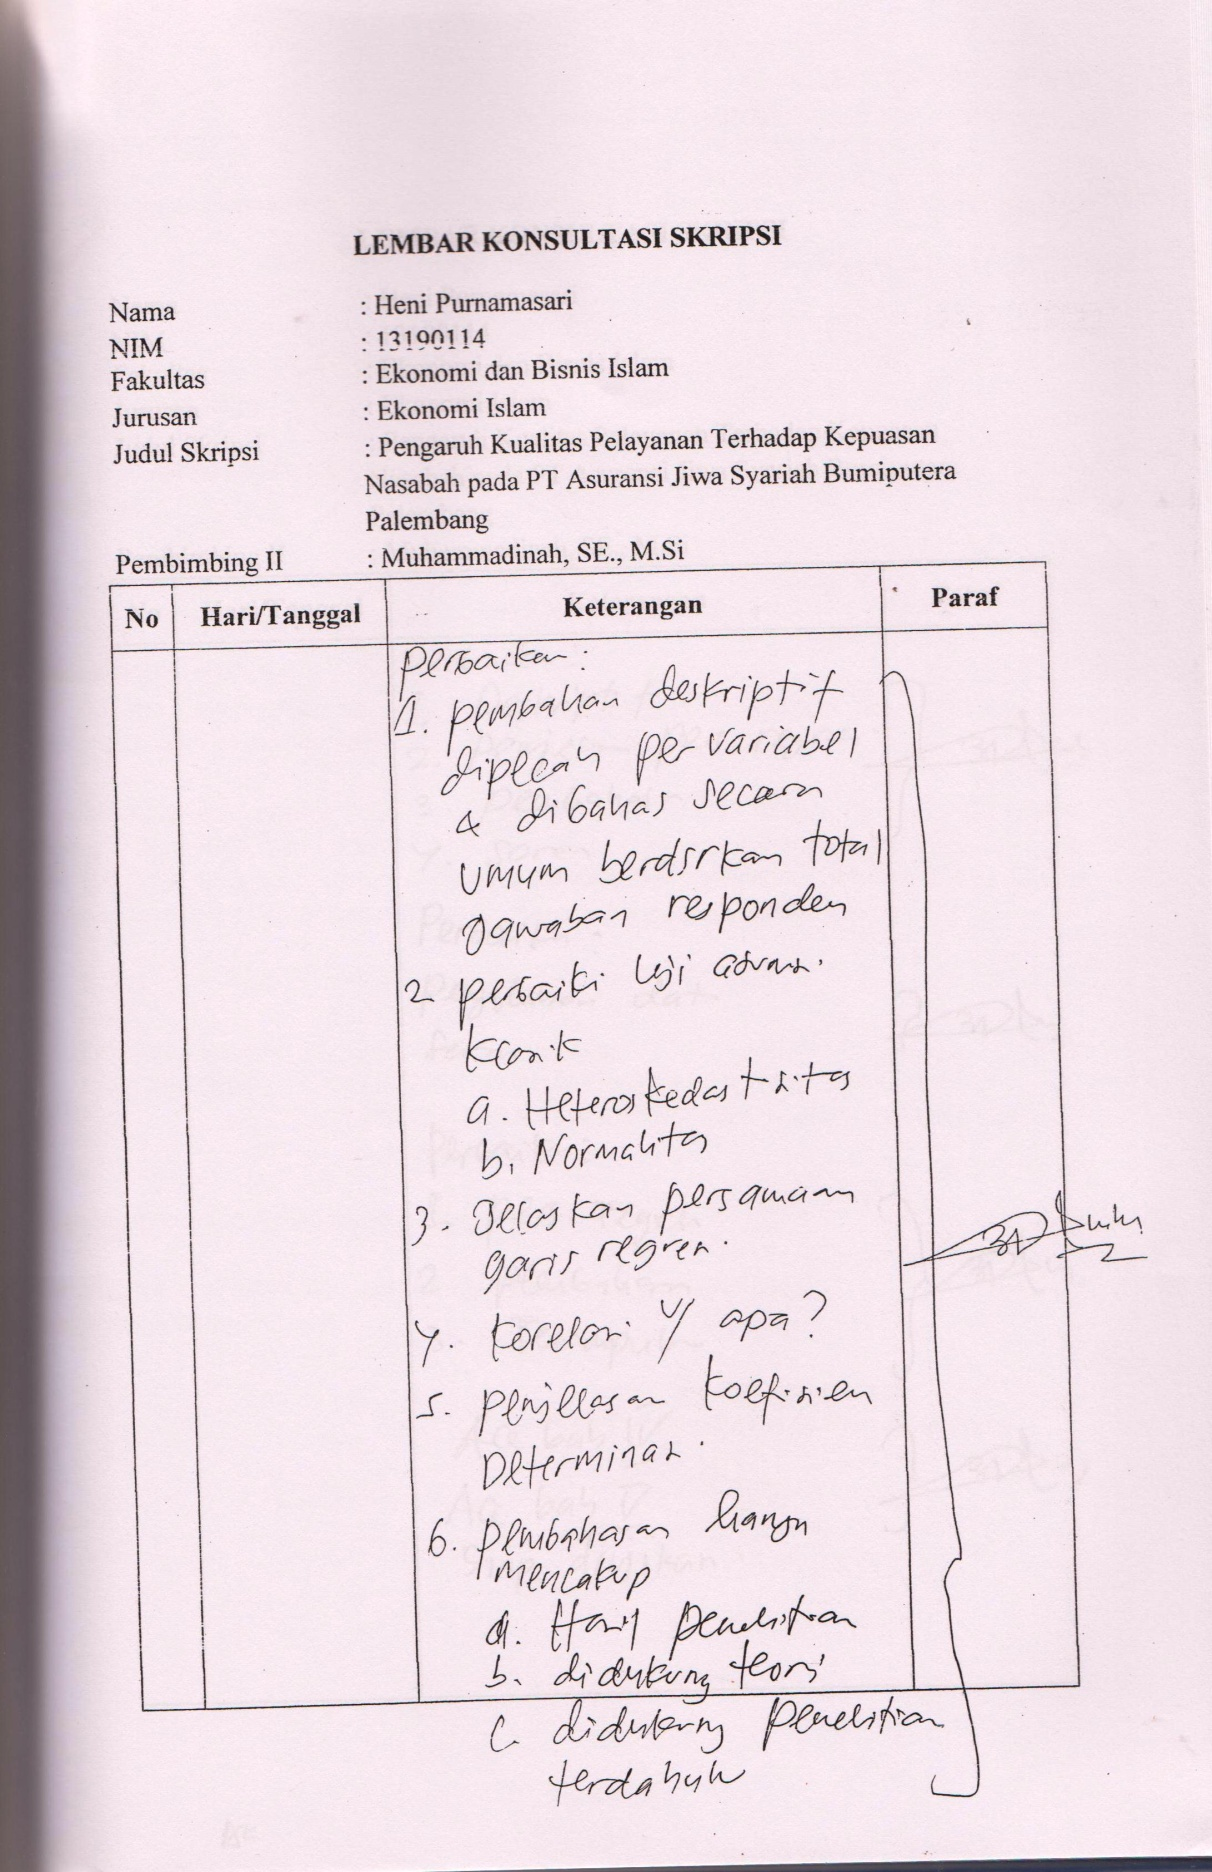 LEMBAR KONSULTASI SKRIPSI
Nama : Heni Purnamasari
NIM : 13190114
Fakultas : Ekonomi dan Bisnis Islam
Jurusan : Ekonomi Islam
Judul Skripsi : Pengaruh Kualitas Pelayanan Terhadap Kepuasan
Nasabah pada PT Asuransi Jiwa Syariah Bumiputera
Palembang
Pembimbing II : Muhammadinah, SE., M.Si
No Hari/Tanggal Keterangan Paraf
Perbaikan :
1. pembahan deskriptif
dipecah per variabel
& dibahas secara
umum berdsrkan total
jawaban responden
2 perbaiki Uji asumsi
klasik
a. Heteroskedastisitas
b. Normalitas
3. Jelaskan persamaan
garis regresi.
4. Korelasi u/ apa?
5. Penjelasan koefisien
Determinasi.
6. pembahasan hanya
mencakup
a. Hasil penelitian
b. didukung teori
c. didukung penelitian
terdahulu